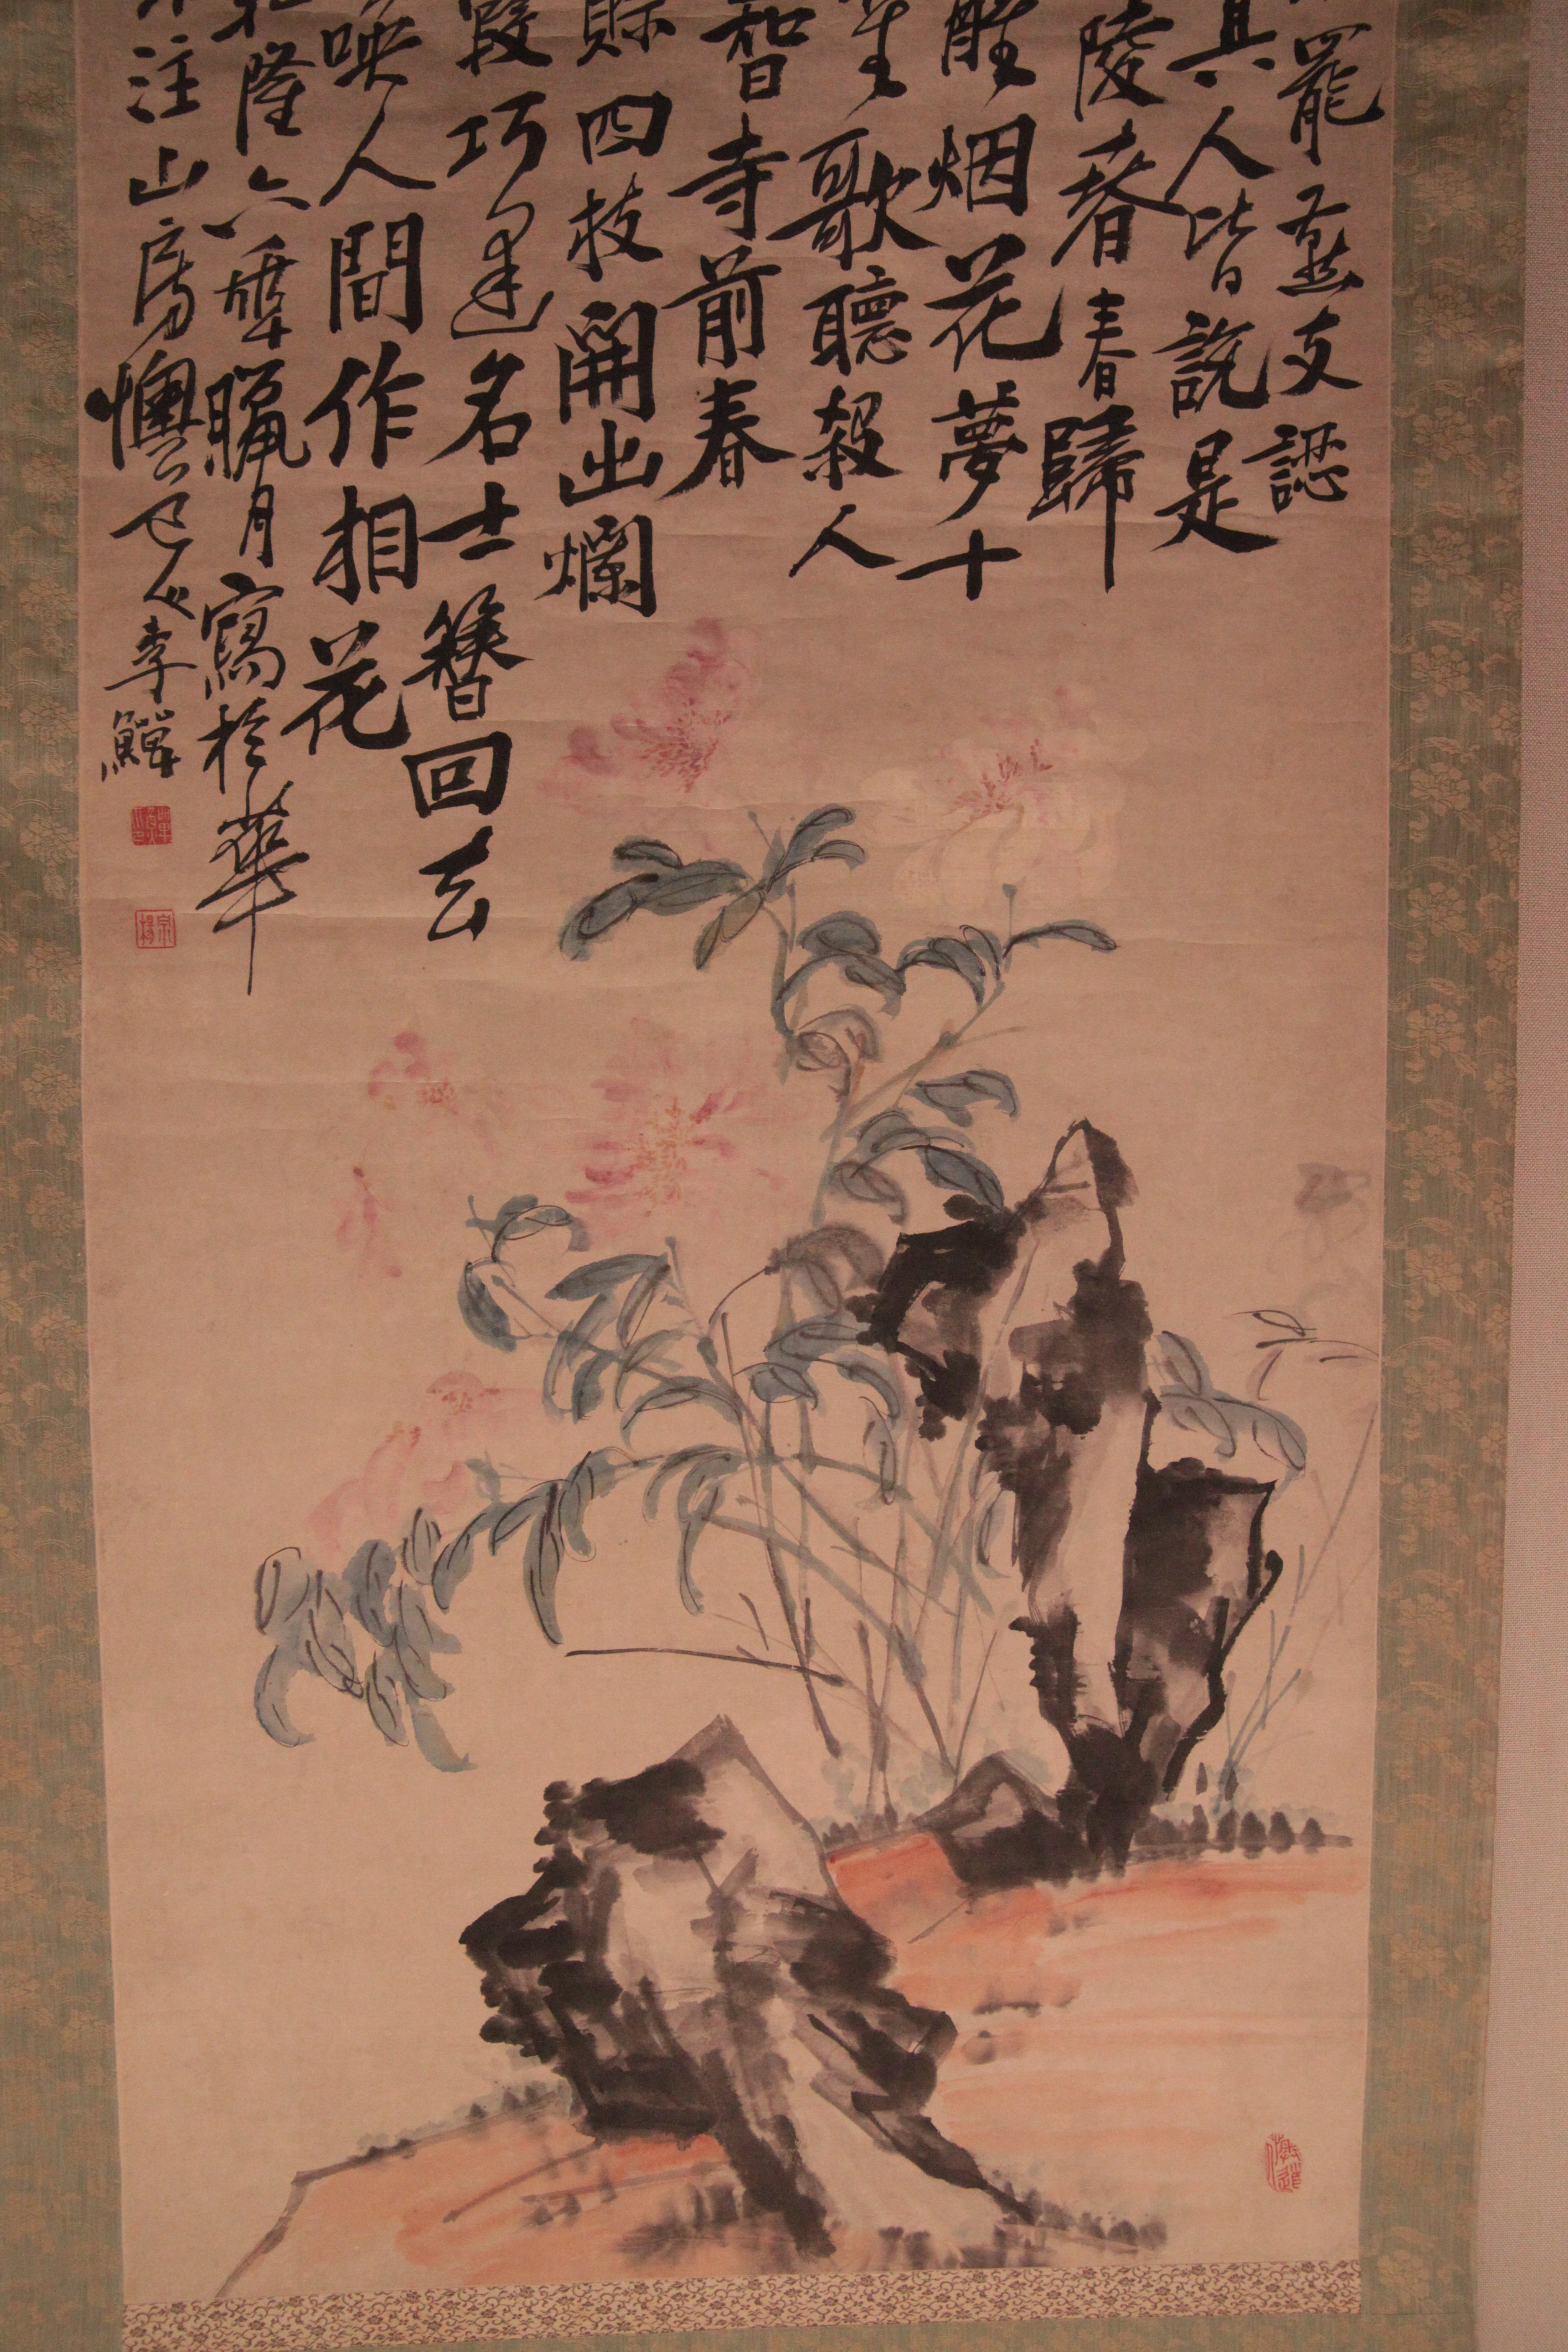 罷 䓕 支 認
具 人 皆 說 是
陵 春 春 歸
醒 烟 花 夢 十
笙 歌 聽 殺 人
智 寺 前 春
賒 四 枝 開 出 爛
霞 巧 逢 名 士 簪 回 去
映 人 間 作 相 花
隆 六 年 臘 月 寫 於 華
注 山 房 懊 道 人 李 鱓